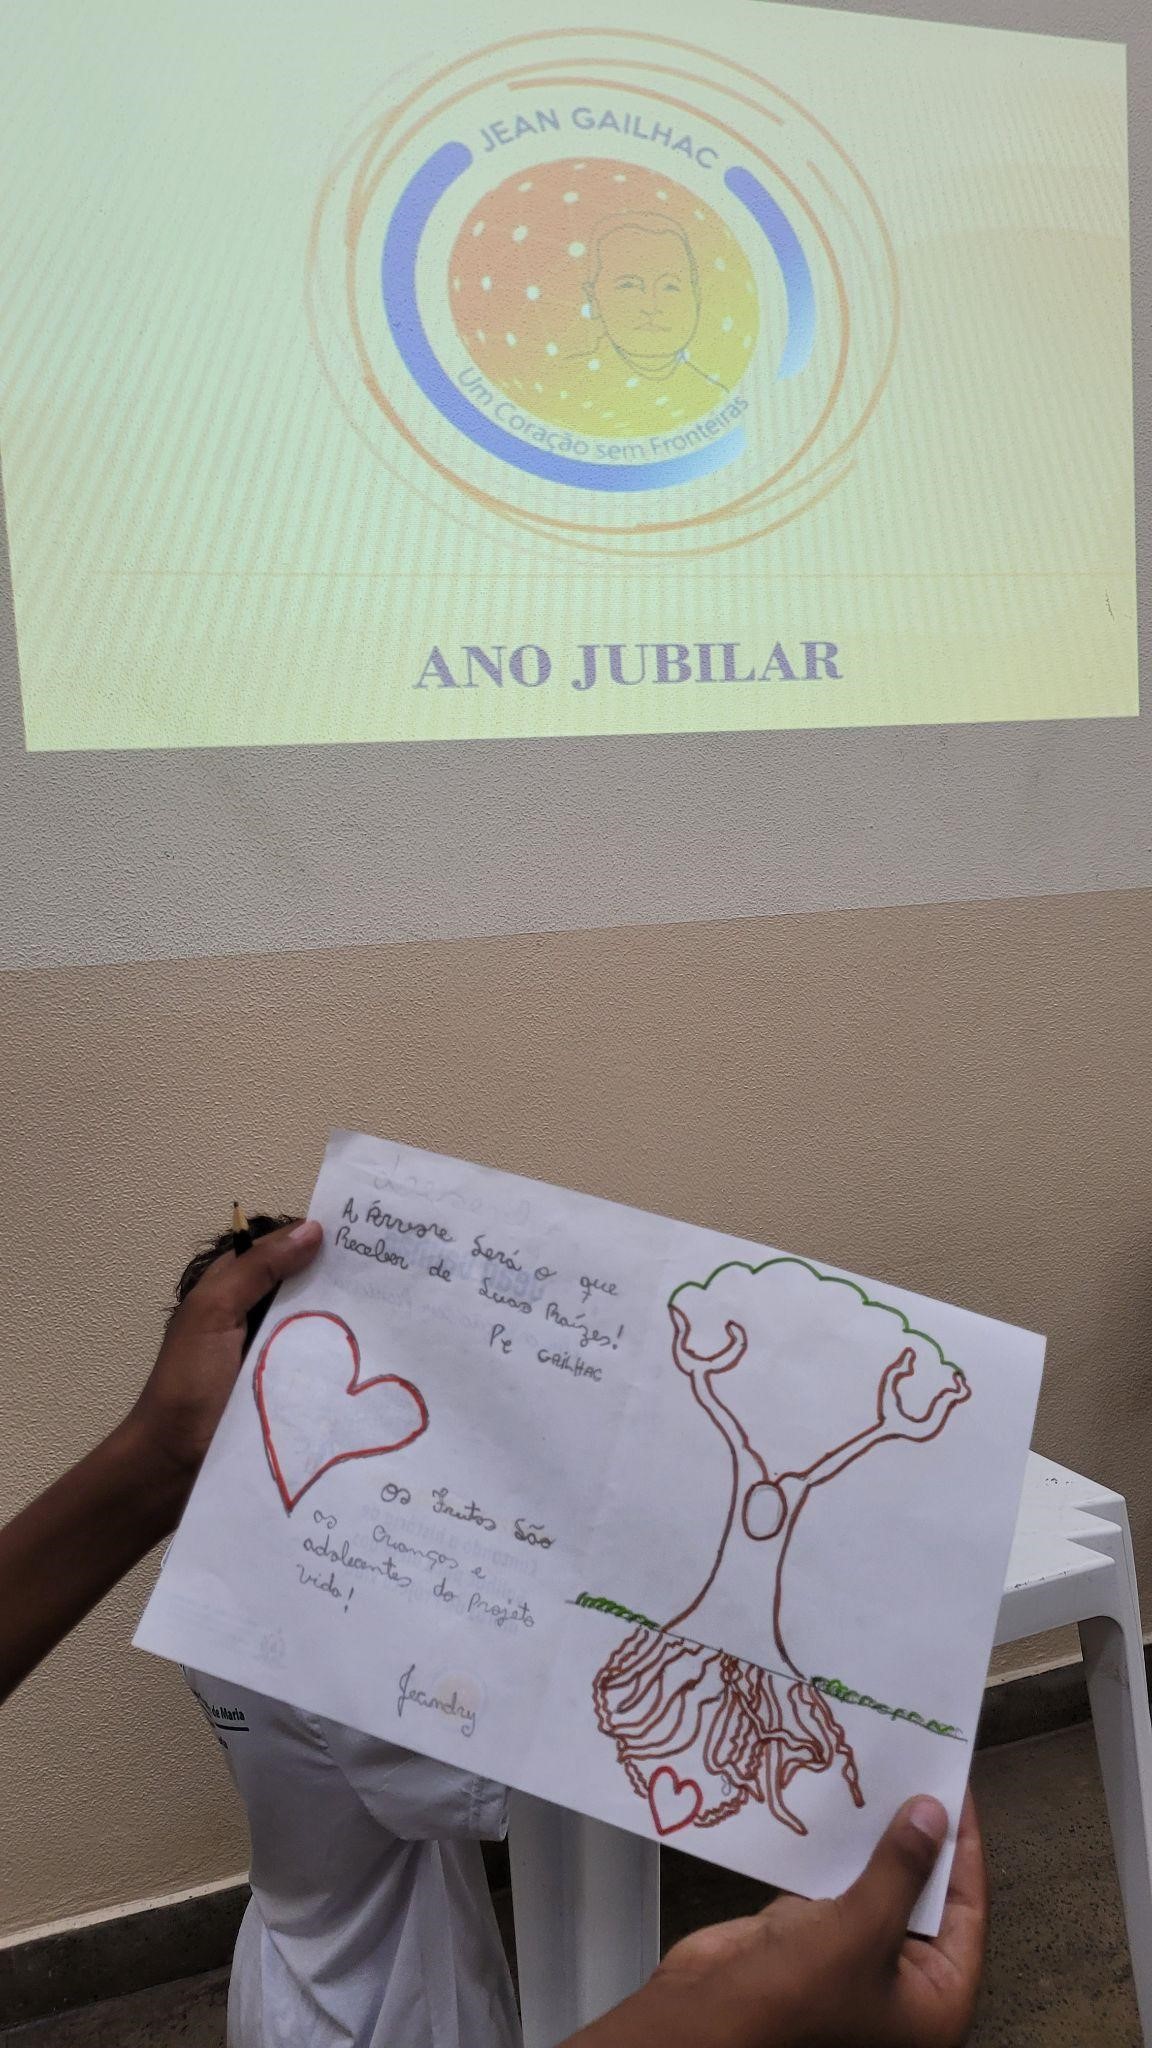 JEAN GAILHAC
Um Coração sem Fronteiras
ANO JUBILAR
A Árvore Será o que
Receber de Suas Raízes!
Pe GAILHAC
Os Frutos São
as Crianças e
adolecentes do projeto
Vida!
Jeandry
de Maria